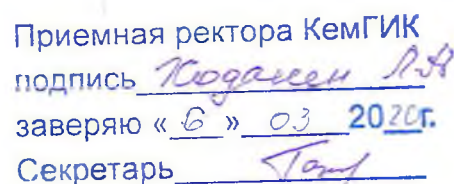 Приемная ректора КемГИК
подпись Ходанен Л.А
заверяю « 6 » 03 2020г.
Секретарь